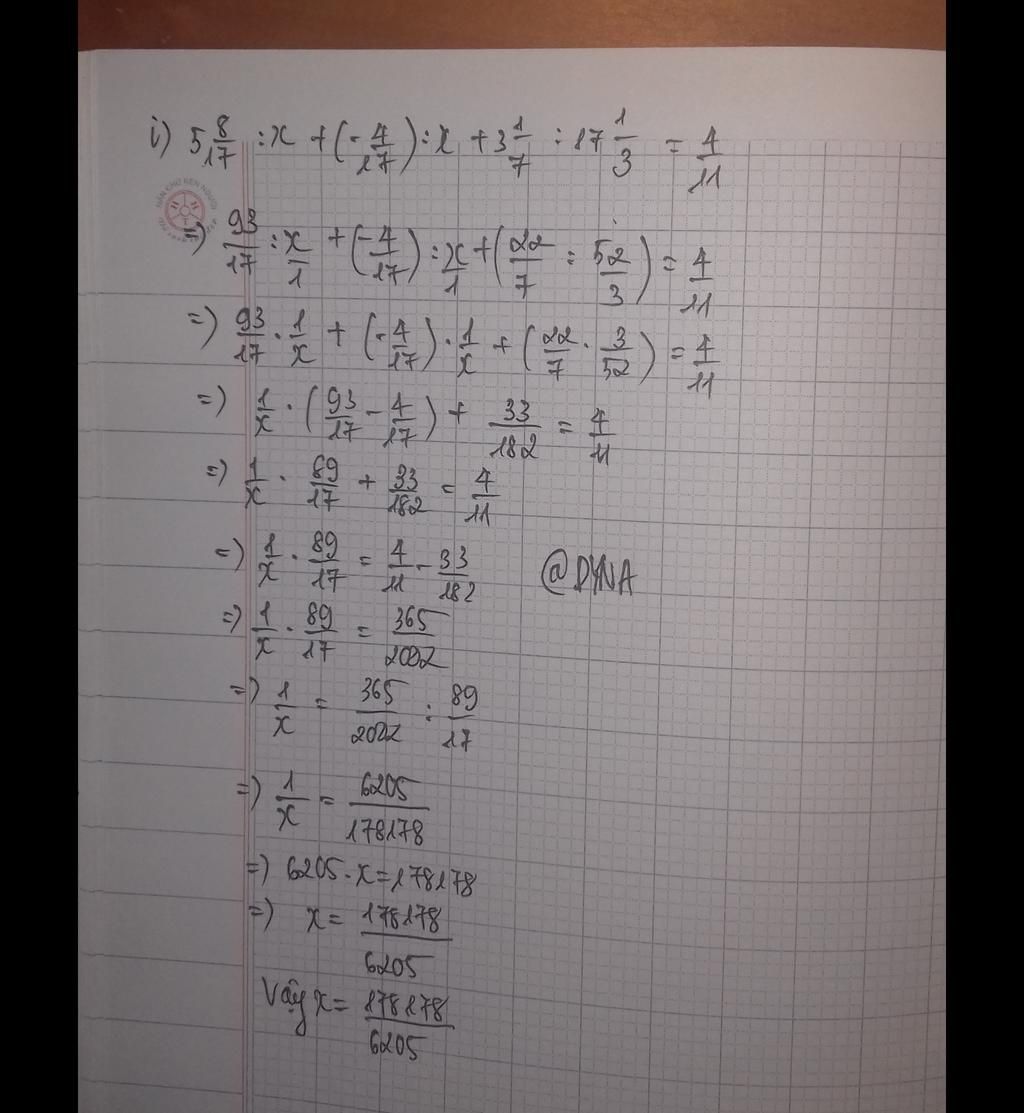 i) 5 8/17 : x + (- 4/17) : x + 3 1/7 : 17 1/3 = 4/11
=) 93/17 : x/1 + (- 4/17) : x/1 + (22/7 : 52/3) = 4/11
=) 93/17 . 1/x + (- 4/17) . 1/x + (22/7 . 3/52) = 4/11
=) 1/x . (93/17 - 4/17) + 33/182 = 4/11
=) 1/x . 89/17 + 33/182 = 4/11
=) 1/x . 89/17 = 4/11 - 33/182 @DYNA
=) 1/x . 89/17 = 365/2002
=) 1/x = 365/2002 : 89/17
=) 1/x = 6205/178178
=) 6205 . x = 178178
=) x = 178178/6205
Vậy x = 178178/6205